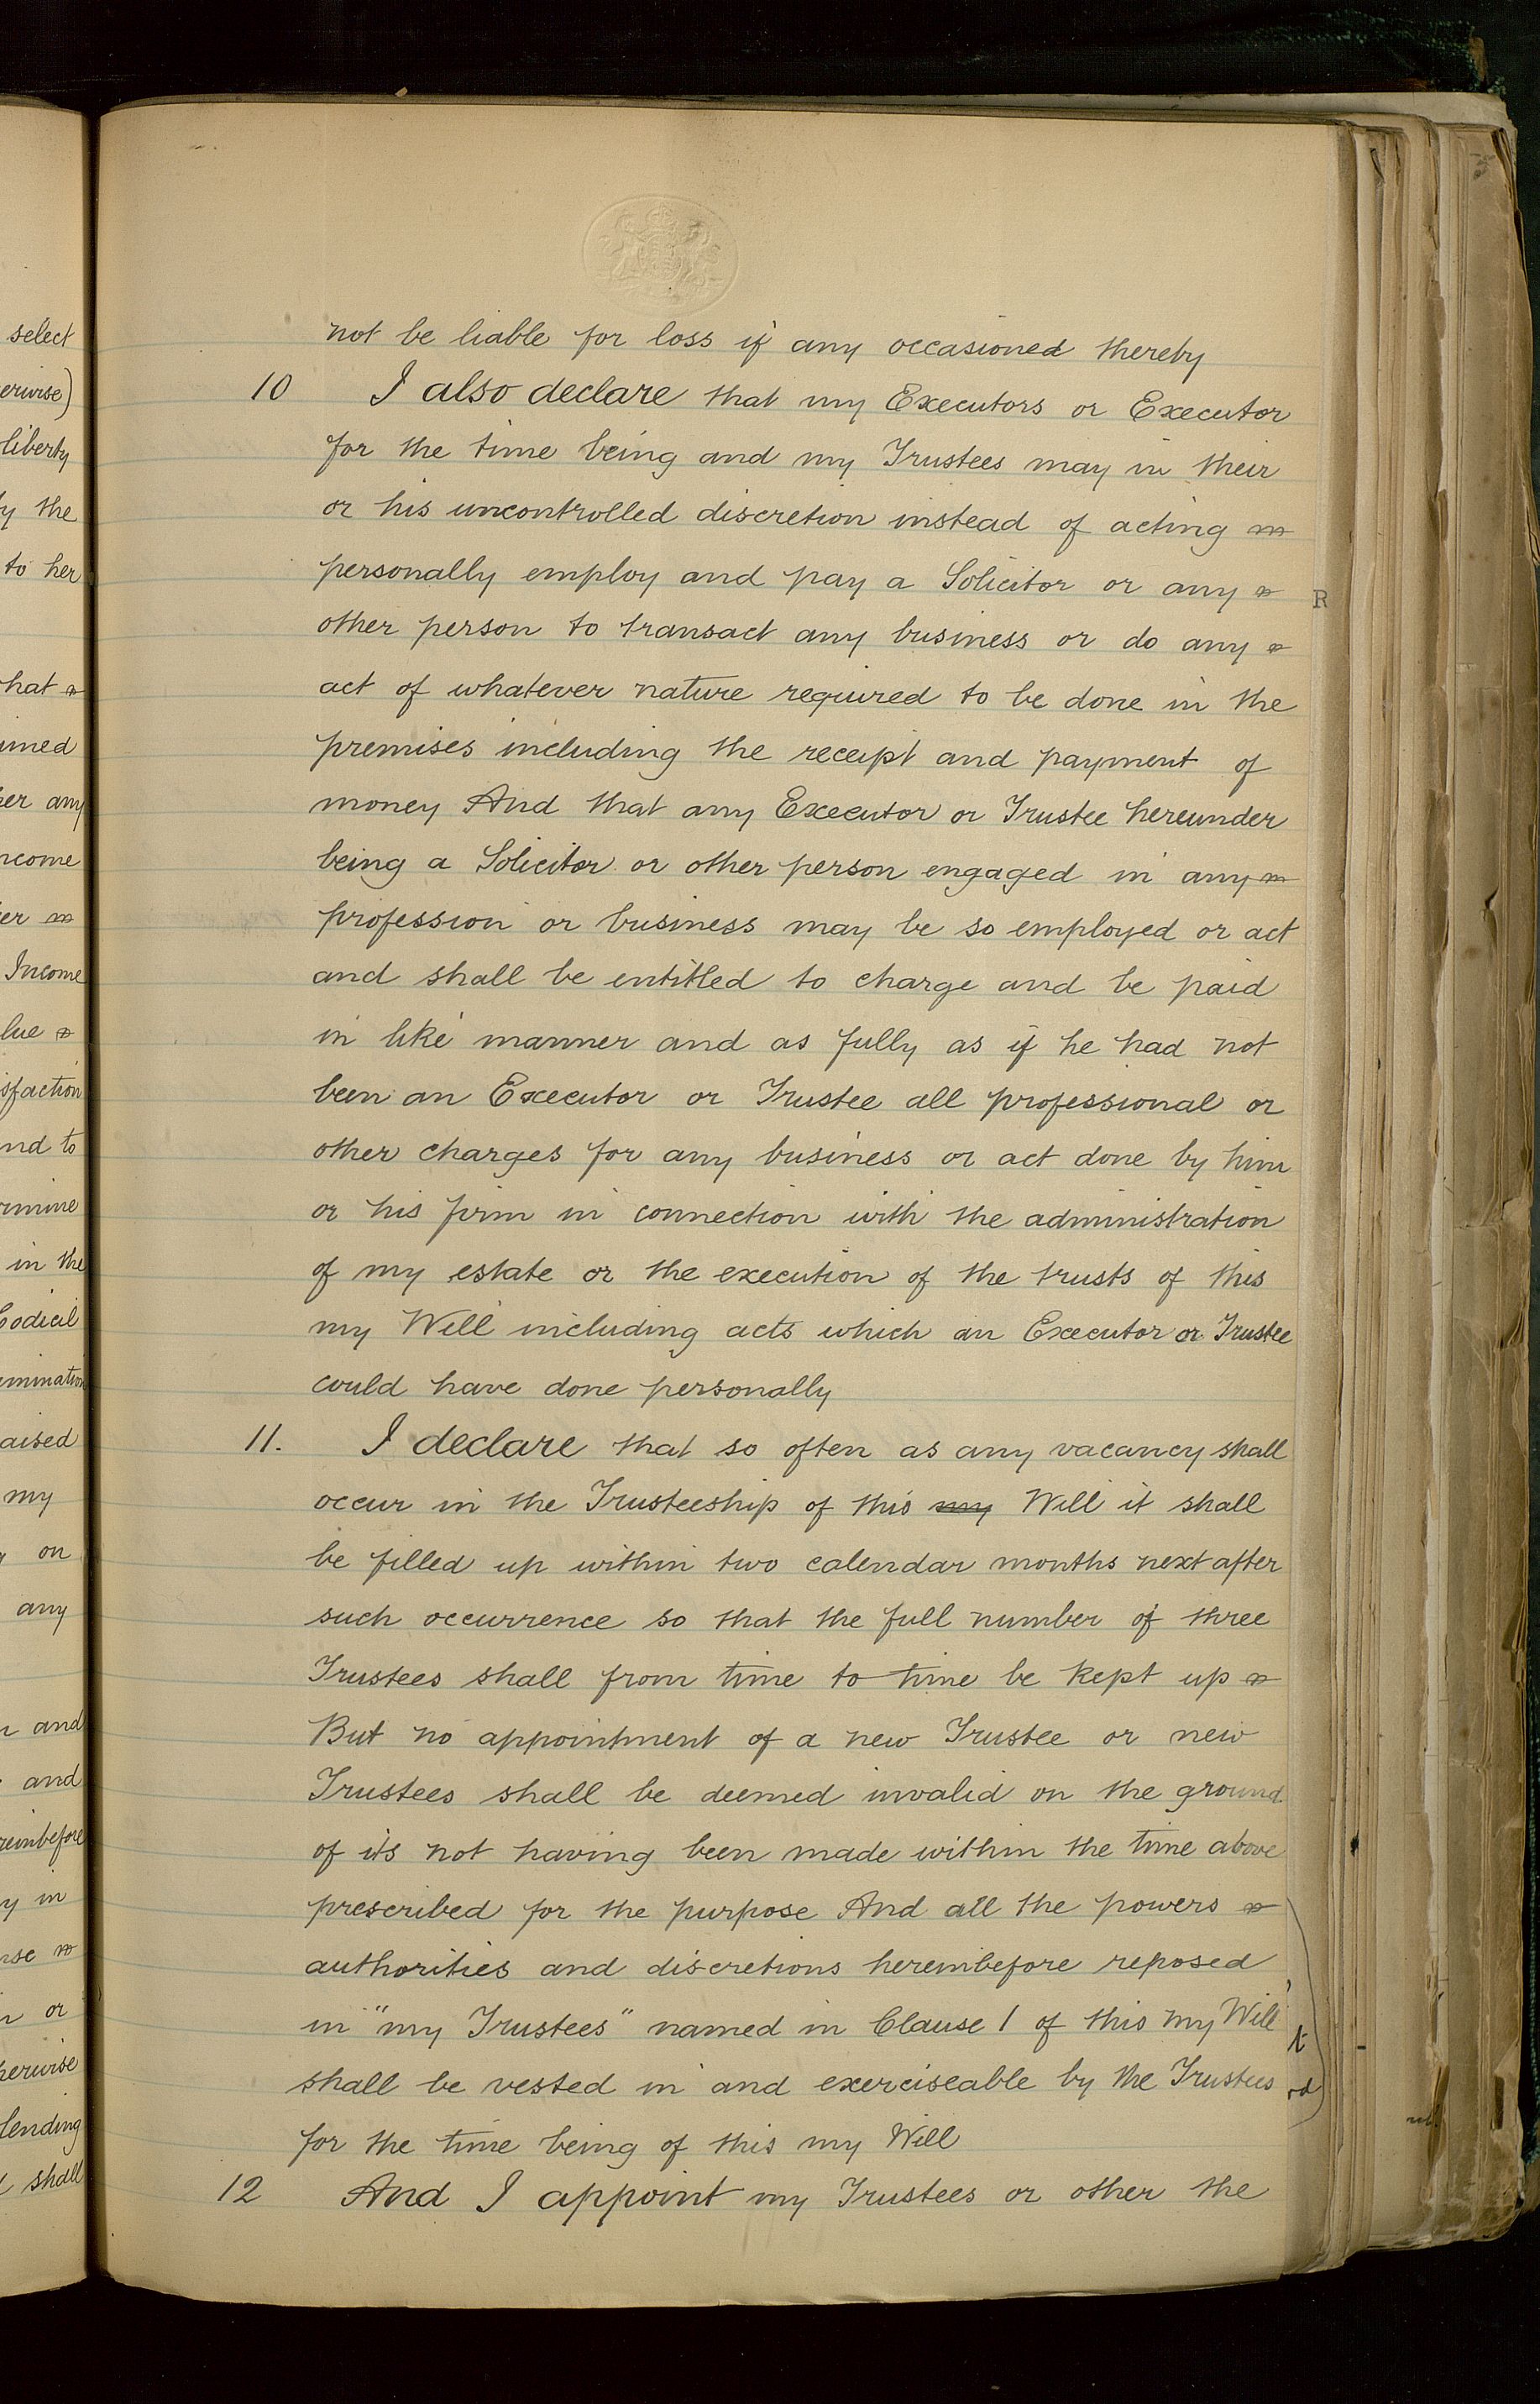 not be liable for loss if any occasioned thereby
10 I also declare that my Executors or Executor
for the time being and my Trustees may in their
or his uncontrolled discretion instead of acting
personally employ and pay a Solicitor or any
other person to transact any business or do any
act of whatever nature required to be done in the
premises including the receipt and payment of
money And that any Executor or Trustee hereunder
being a Solicitor or other person engaged in any
profession or business may be so employed or act
and shall be entitled to charge and be paid
in like manner and as fully as if he had not
been an Executor or Trustee all professional or
other charges for any business or act done by him
or his firm in connection with the administration
of my estate or the execution of the trusts of this
my Will including acts which an Executor or Trustee
could have done personally
11. I declare that so often as any vacancy shall
occur in the Trusteeship of this my Will it shall
be filled up within two calendar months next after
such occurrence so that the full number of three
Trustees shall from time to time be kept up
But no appointment of a new Trustee or new
Trustees shall be deemed invalid on the ground
of its not having been made within the time above
prescribed for the purpose And all the powers
authorities and discretions hereinbefore reposed
in "my Trustees" named in Clause 1 of this my Will
shall be vested in and exerciseable by the Trustees
for the time being of this my Will
12 And I appoint my Trustees or other the
select
liberty
the
to her
any
Income
and to
in the
Codicil
my
on
any
and
and
in
or
lending
shall
R